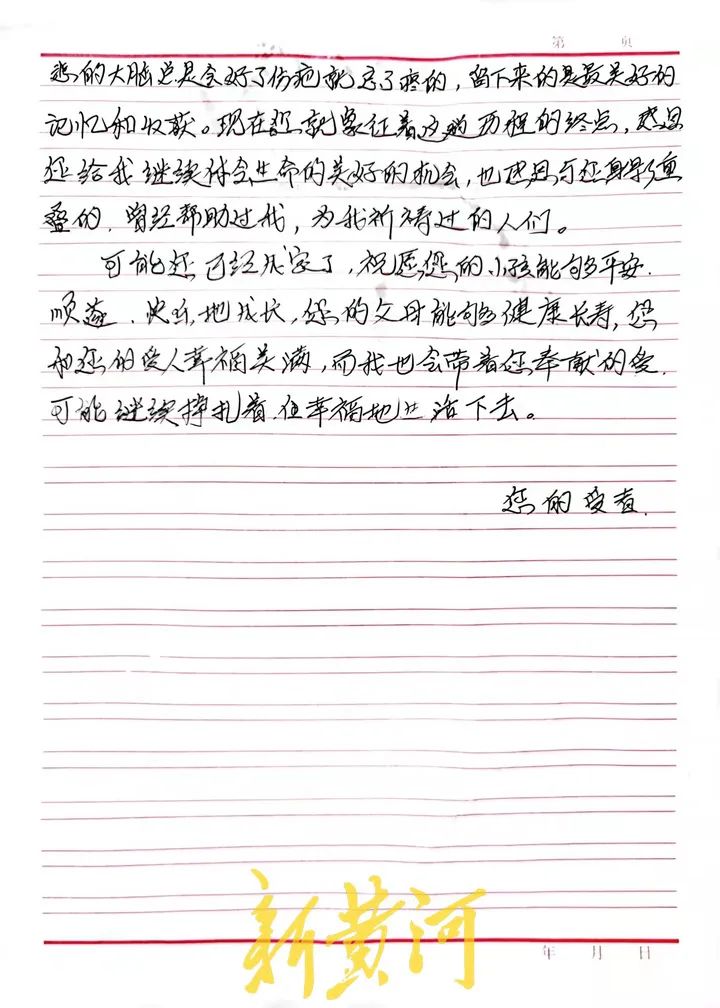 第 页
的大脑总是会好了伤疤就忘了疼的，留下来的是最美好的
记忆和收获。现在您就象征着这趟历程的终点，感恩
您给我继续体会生命的美好的机会，也感恩与您身影重
叠的、曾经帮助过我，为我祈祷过的人们。
可能您已经成家了，祝愿您的小孩能够平安、
顺遂、快乐地成长，您的父母能够健康长寿，您
和您的爱人幸福美满，而我也会带着您奉献的爱，
可能继续挣扎着，但幸福地生活下去。
您的受者.
新黄河
年 月 日